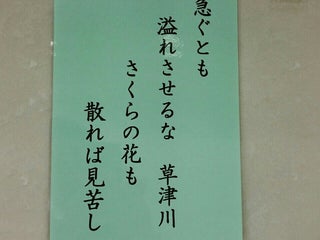 急ぐとも
溢れさせるな　草津川
さくらの花も
散れば見苦し